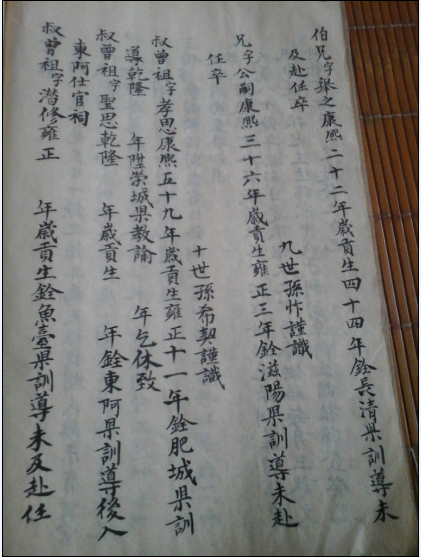 伯兄字舉之康熙二十二年歲貢生四十四年銓長清県訓導未
及赴任卒
九世孫怍謹識
兄字公嗣康熙三十六年歲貢生雍正三年銓滋陽県訓導未赴
任卒
十世孫希契謹識
叔曾祖字孝思康熙五十九年歲貢生雍正十一年銓肥城県訓
導乾隆 年陞榮城県教諭 年乞休致
叔曾祖字聖思乾隆 年歲貢生 年銓東阿県訓導後入
東阿仕宦祠
叔曾祖字潛修雍正 年歲貢生銓魚臺県訓導未及赴任